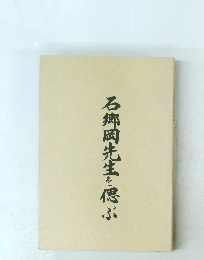 石郷岡先生を偲ぶ